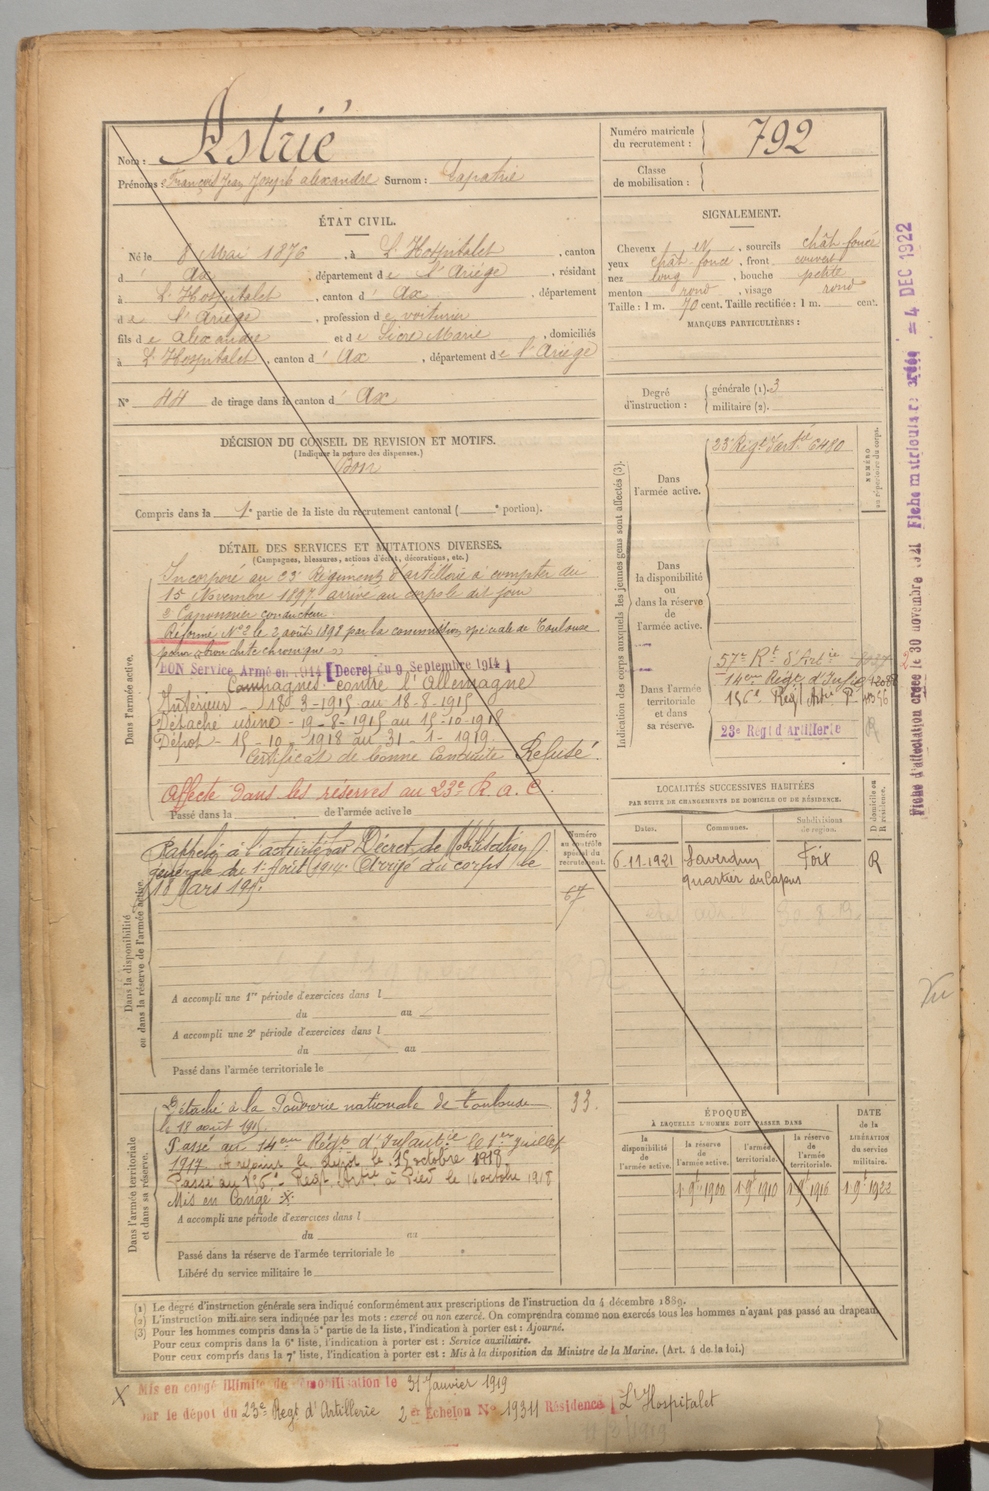 Nom : Astrié
Prénoms : François Jean Joseph alexandre Surnom : Capatrie
Numéro matricule du recrutement : 792
Classe de mobilisation :
ÉTAT CIVIL.
Né le 8 Mai 1876, à L'Hospitalet, canton
d' Ax, département de l'Ariège, résidant
à L'Hospitalet, canton d' Ax, département
de l'Ariège, profession de voiturier
fils de Alexandre et de Sicre Marie, domiciliés
à L'Hospitalet, canton d' Ax, département de l'Ariège
N° 44 de tirage dans le canton d' Ax
SIGNALEMENT.
Cheveux N, sourcils chât foncé
yeux chât foncé, front couvert
nez long, bouche petite
menton rond, visage rond
Taille : 1 m. 70 cent. Taille rectifiée : 1 m. cent.
MARQUES PARTICULIÈRES :
Degré d'instruction : générale (1). 3
militaire (2).
DÉCISION DU CONSEIL DE REVISION ET MOTIFS.
(Indiquer la nature des dispenses.)
Bon
Compris dans la 1e partie de la liste du recrutement cantonal ( e portion).
DÉTAIL DES SERVICES ET MUTATIONS DIVERSES.
(Campagnes, blessures, actions d'éclat, décorations, etc.)
Dans l'armée active.
Incorporé au 23e Régiment d'artillerie à compter du
15 Novembre 1897 arrivé au corps le dit jour
2e Canonnier conducteur
Réformé N°2 le 2 août 1898 par la commission spéciale de Toulouse
pour bronchite chronique
BON Service Armé en 1914 [Décret du 9 Septembre 1914]
Campagnes contre l'Allemagne
Intérieur - 18-3-1915 au 18-8-1915
Détaché usine - 19-8-1915 au 15-10-1918
Dépôt - 15-10-1918 au 31-1-1919
Certificat de bonne Conduite Refusé.
Affecté dans les réserves au 23e R.a.C.
Passé dans la de l'armée active le
Indication des corps auxquels les jeunes gens sont affectés (3).
NUMÉRO au répertoire du corps.
Dans l'armée active. 23e Régt d'artie 6480
Dans la disponibilité ou dans la réserve de l'armée active.
Dans l'armée territoriale et dans sa réserve.
57e Rt d'Artie
14em Régt d'Infie
156e Régt Artie P
23e Régt d'Artillerie
LOCALITÉS SUCCESSIVES HABITÉES
PAR SUITE DE CHANGEMENTS DE DOMICILE OU DE RÉSIDENCE.
Dates. Communes. Subdivisions de région. D domicile ou R résidence.
6-11-1921 Saverdun Foix R
quartier du Capus
Dans la disponibilité ou dans la réserve de l'armée active.
Numéro au contrôle spécial du recrutement.
Rappelé à l'activité par Décret de Mobilisation
générale du 1er Août 1914. Arrivé au corps le
18 Mars 1915.
67
A accompli une 1re période d'exercices dans l
du au
A accompli une 2e période d'exercices dans l
du au
Passé dans l'armée territoriale le
Dans l'armée territoriale et dans sa réserve.
Détaché à la Poudrerie nationale de Toulouse
le 18 août 1915.
33.
Passé au 14em Régt d'Infantie le 1er Juillet
1917. A rejoint le dépôt le 15 octobre 1918
Passé au 156e Régt Artie à Pied le 16 octobre 1918
Mis en Congé X
A accompli une période d'exercices dans l
du au
Passé dans la réserve de l'armée territoriale le
Libéré du service militaire le
ÉPOQUE
À LAQUELLE L'HOMME DOIT PASSER DANS
la disponibilité de l'armée active.
la réserve de l'armée active.
l'armée territoriale.
la réserve de l'armée territoriale.
DATE de la LIBÉRATION du service militaire.
1 9bre 1900 1 9bre 1910 1 9bre 1916 1 9bre 1922
(1) Le degré d'instruction générale sera indiqué conformément aux prescriptions de l'instruction du 4 décembre 1889.
(2) L'instruction militaire sera indiquée par les mots : exercé ou non exercé. On comprendra comme non exercés tous les hommes n'ayant pas passé au drapeau.
(3) Pour les hommes compris dans la 5e partie de la liste, l'indication à porter est : Ajourné.
Pour ceux compris dans la 6e liste, l'indication à porter est : Service auxiliaire.
Pour ceux compris dans la 7e liste, l'indication à porter est : Mis à la disposition du Ministre de la Marine. (Art. 4 de la loi.)
X Mis en congé illimité de démobilisation le 31 Janvier 1919
par le dépôt du 23e Regt d'Artillerie 2 er Echelon N° 19311 Résidence [L'Hospitalet
Fiche d'attestation créée le 30 novembre Fiche matriculaire créée = 4 DEC 1922
Vu